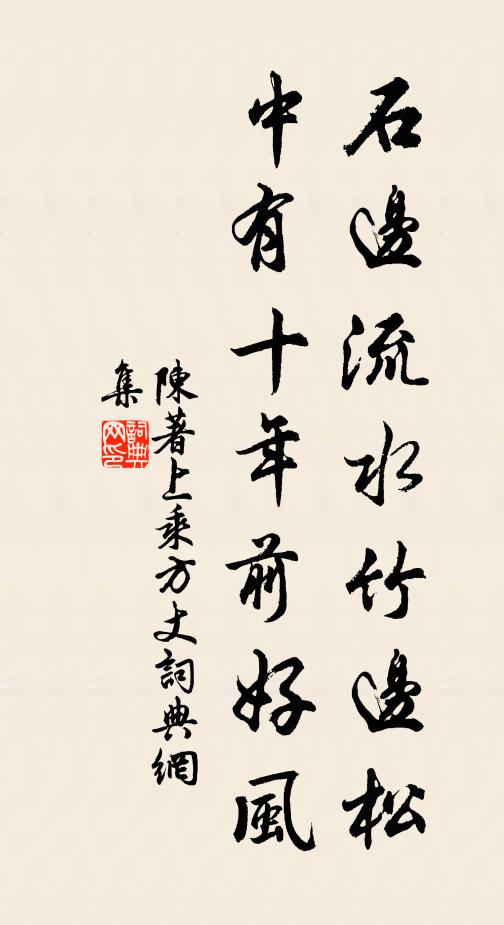 石邊流水竹邊松
中有十年前好風
陳著上乘方丈詞典網
集
詞典
网印